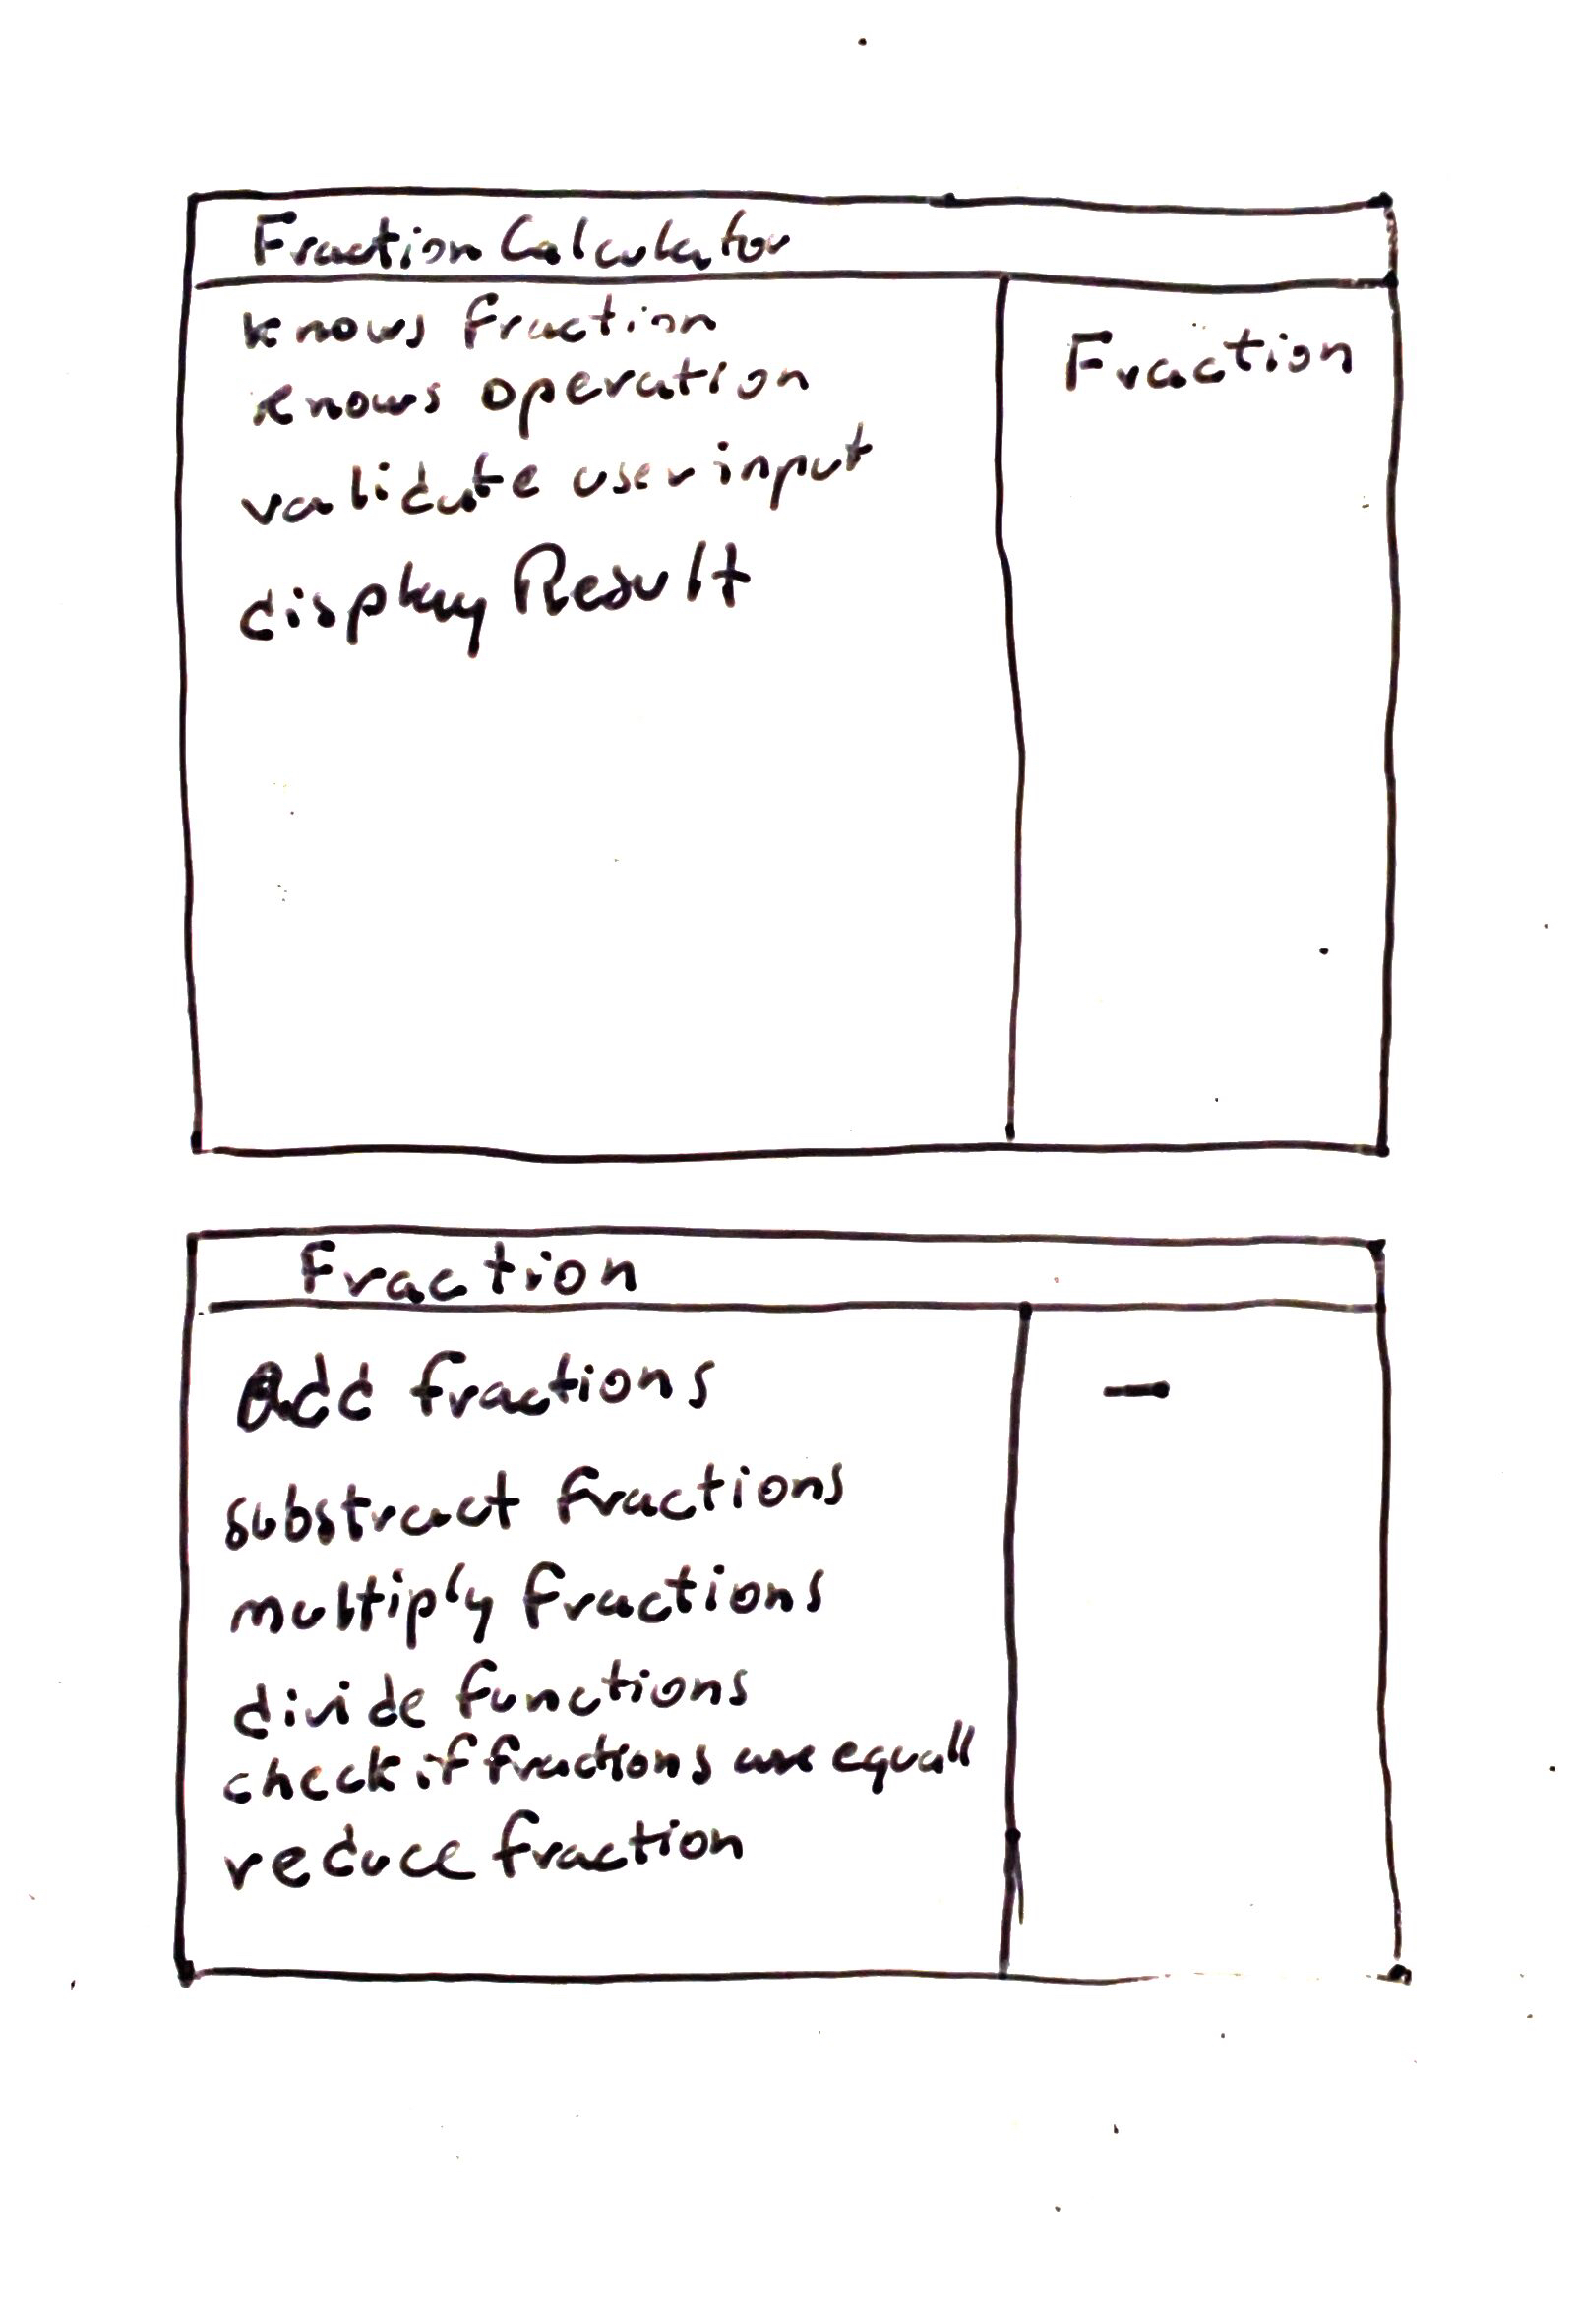 Fraction Calculator
knows fraction
Fraction
knows operation
validate user input
display Result
Fraction
Add fractions
—
substract fractions
multiply fractions
divide functions
check if fractions are equall
reduce fraction